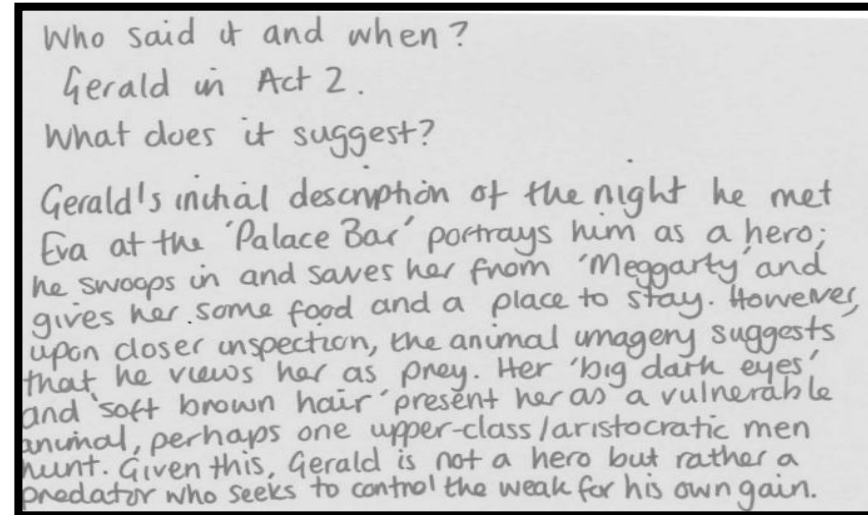 Who said it and when?
Gerald in Act 2.
What does it suggest?
Gerald's initial description of the night he met
Eva at the 'Palace Bar' portrays him as a hero;
he swoops in and saves her from 'Meggarty' and
gives her some food and a place to stay. However,
upon closer inspection, the animal imagery suggests
that he views her as prey. Her 'big dark eyes'
and 'soft brown hair' present her as a vulnerable
animal, perhaps one upper-class/aristocratic men
hunt. Given this, Gerald is not a hero but rather a
predator who seeks to control the weak for his own gain.